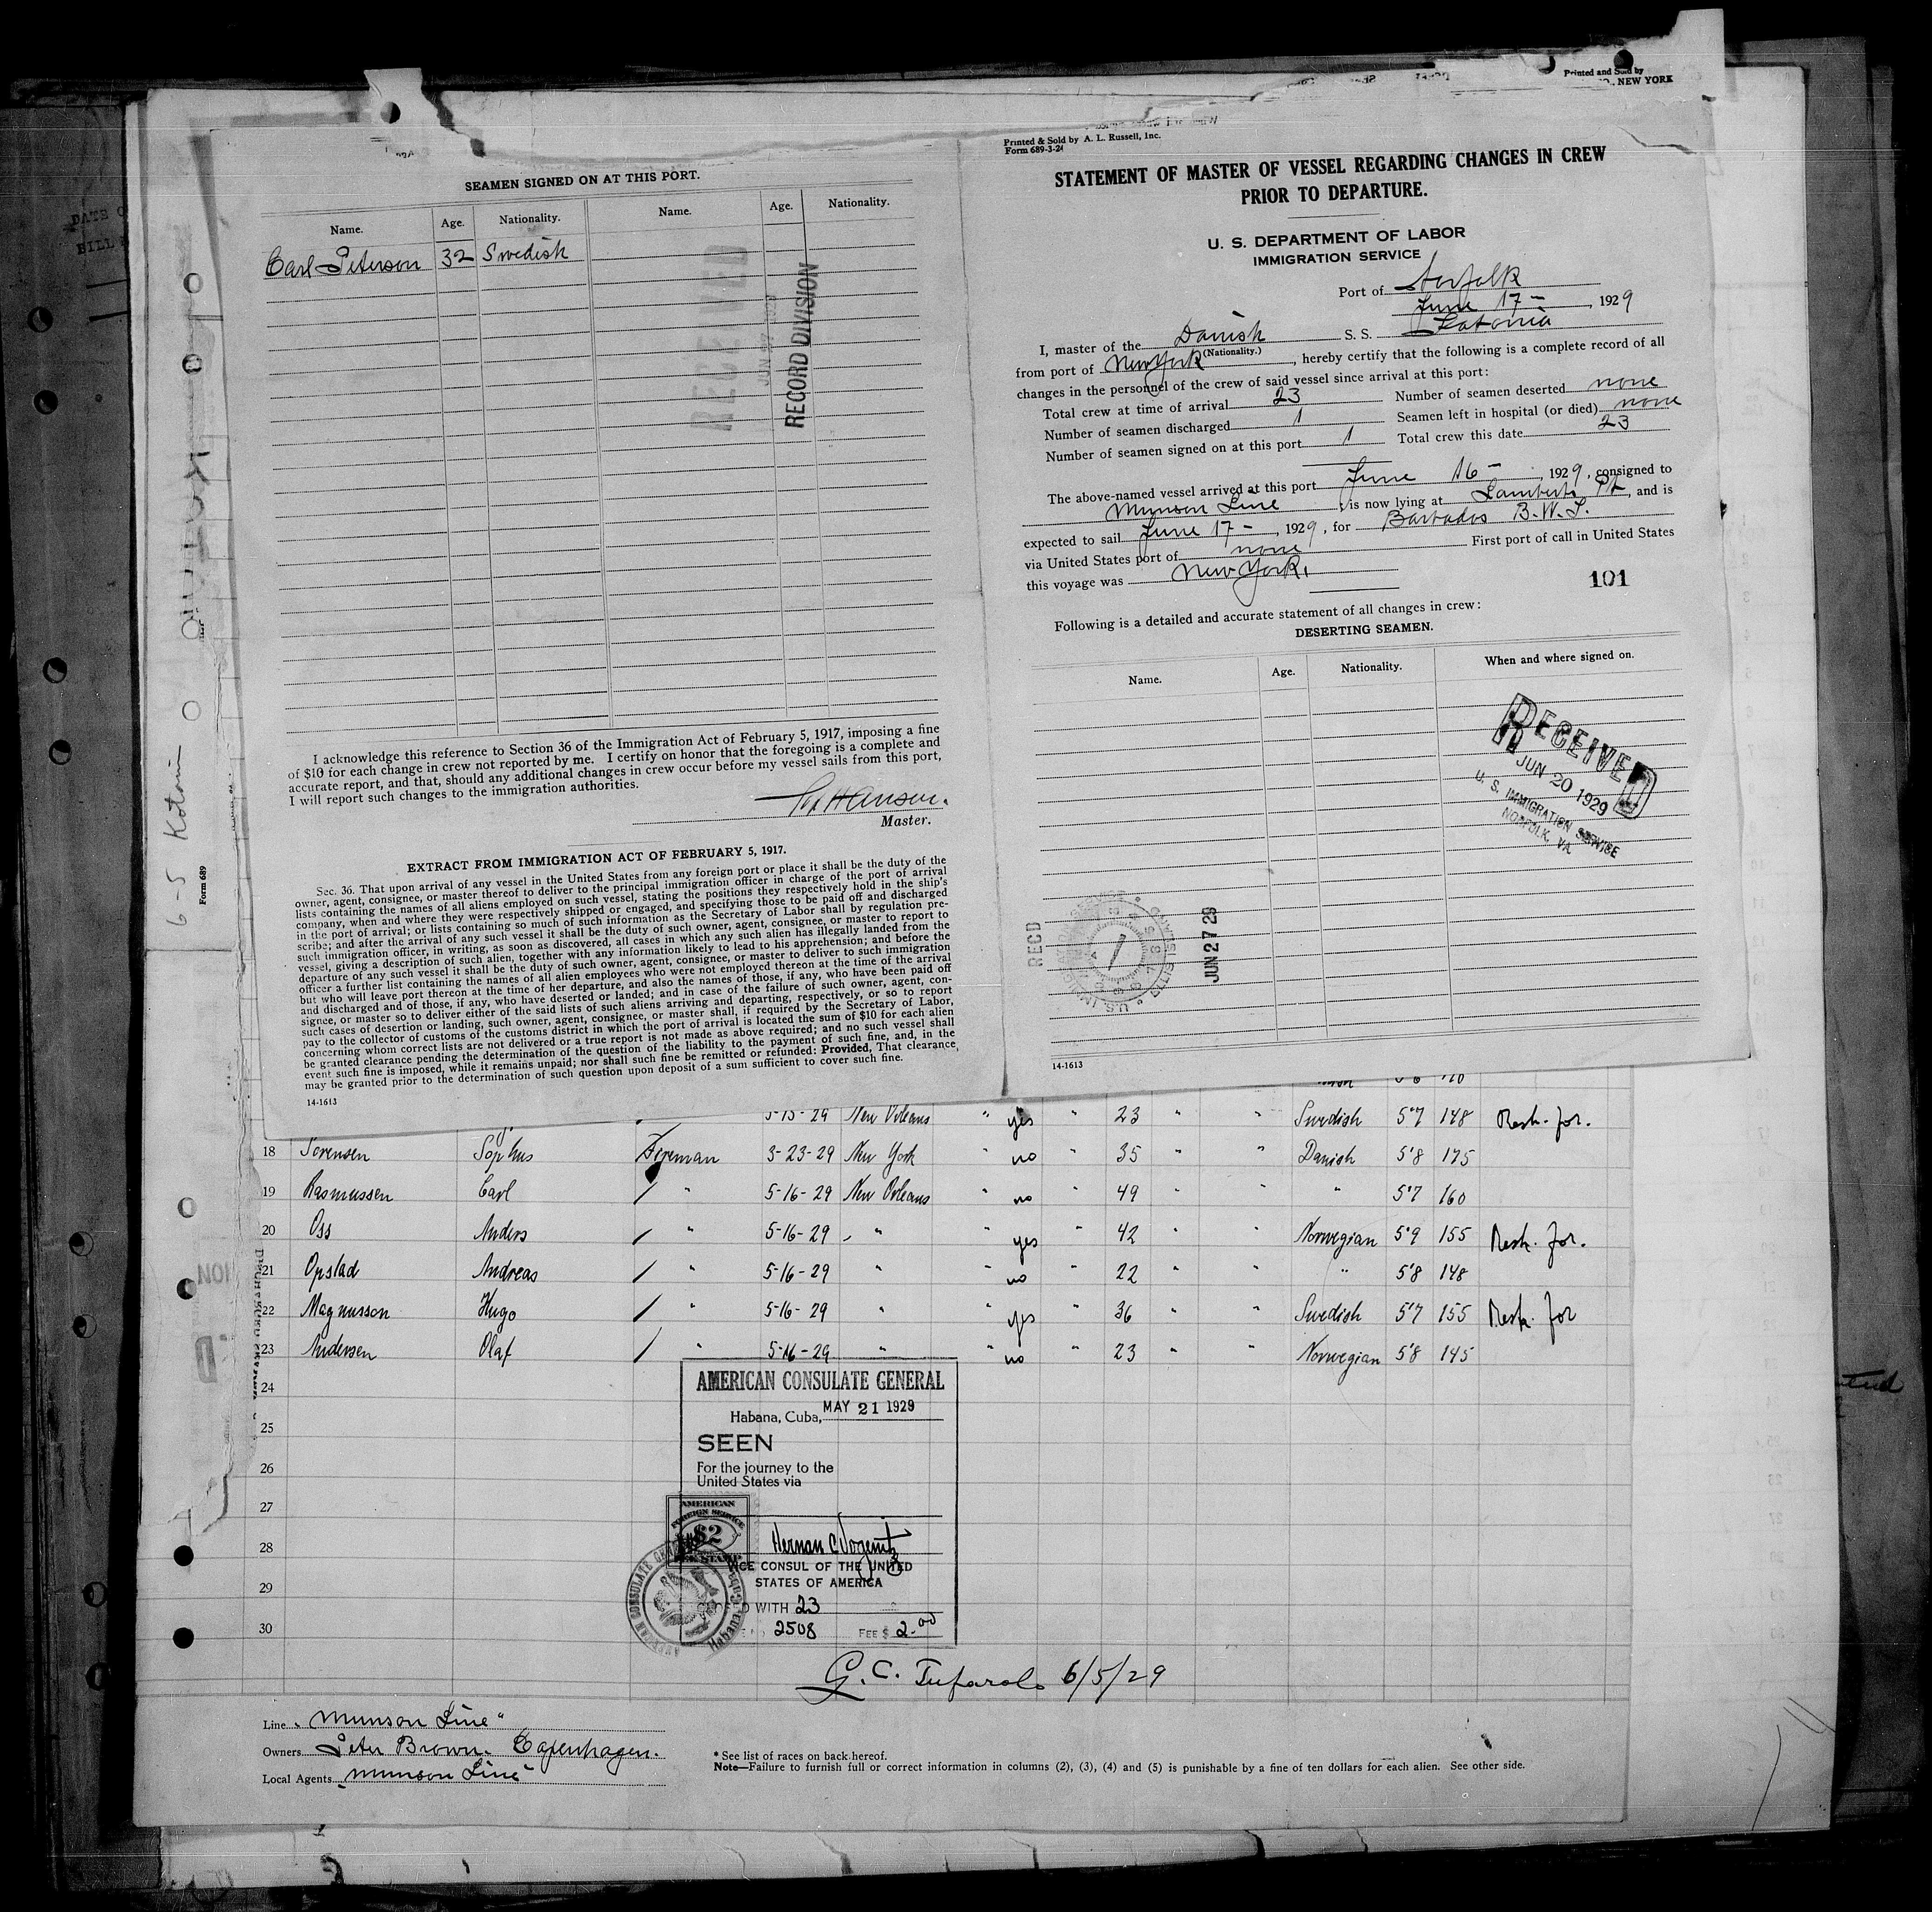 Printed and Sold by
NEW YORK
SEAMEN SIGNED ON AT THIS PORT.
Name. Age. Nationality. Name. Age. Nationality.
Carl Peterson 32 Swedish
RECEIVED
RECORD DIVISION
I acknowledge this reference to Section 36 of the Immigration Act of February 5, 1917, imposing a fine
of $10 for each change in crew not reported by me. I certify on honor that the foregoing is a complete and
accurate report, and that, should any additional changes in crew occur before my vessel sails from this port,
I will report such changes to the immigration authorities.
Hansen.
Master.
EXTRACT FROM IMMIGRATION ACT OF FEBRUARY 5, 1917.
Sec. 36. That upon arrival of any vessel in the United States from any foreign port or place it shall be the duty of the
owner, agent, consignee, or master thereof to deliver to the principal immigration officer in charge of the port of arrival
lists containing the names of all aliens employed on such vessel, stating the positions they respectively hold in the ship's
company, when and where they were respectively shipped or engaged, and specifying those to be paid off and discharged
in the port of arrival; or lists containing so much of such information as the Secretary of Labor shall by regulation pre-
scribe; and after the arrival of any such vessel it shall be the duty of such owner, agent, consignee, or master to report to
such immigration officer, in writing, as soon as discovered, all cases in which any such alien has illegally landed from the
vessel, giving a description of such alien, together with any information likely to lead to his apprehension; and before the
departure of any such vessel it shall be the duty of such owner, agent, consignee, or master to deliver to such immigration
officer a further list containing the names of all alien employees who were not employed thereon at the time of the arrival
but who will leave port thereon at the time of her departure, and also the names of those, if any, who have been paid off
and discharged and of those, if any, who have deserted or landed; and in case of the failure of such owner, agent, con-
signee, or master so to deliver either of the said lists of such aliens arriving and departing, respectively, or so to report
such cases of desertion or landing, such owner, agent, consignee, or master shall, if required by the Secretary of Labor,
pay to the collector of customs of the customs district in which the port of arrival is located the sum of $10 for each alien
concerning whom correct lists are not delivered or a true report is not made as above required; and no such vessel shall
be granted clearance pending the determination of the question of the liability to the payment of such fine, and, in the
event such fine is imposed, while it remains unpaid; nor shall such fine be remitted or refunded: Provided, That clearance
may be granted prior to the determination of such question upon deposit of a sum sufficient to cover such fine.
14-1613
Printed & Sold by A. L. Russell, Inc.
Form 689-3-24
STATEMENT OF MASTER OF VESSEL REGARDING CHANGES IN CREW
PRIOR TO DEPARTURE.
U. S. DEPARTMENT OF LABOR
IMMIGRATION SERVICE
Port of Norfolk
June 17 - , 1929
I, master of the Danish S. S. Latonia
(Nationality.)
from port of New York, hereby certify that the following is a complete record of all
changes in the personnel of the crew of said vessel since arrival at this port:
Total crew at time of arrival 23 Number of seamen deserted none
Number of seamen discharged 1 Seamen left in hospital (or died) none
Number of seamen signed on at this port 1 Total crew this date 23
The above-named vessel arrived at this port June 16 - 1929, consigned to
Munson Line, is now lying at Lamberts Pt, and is
expected to sail June 17 - , 1929, for Barbados B.W.I.
via United States port of none First port of call in United States
this voyage was New York.
101
Following is a detailed and accurate statement of all changes in crew:
DESERTING SEAMEN.
Name. Age. Nationality. When and where signed on.
RECEIVED
JUN 20 1929
U. S. IMMIGRATION SERVICE
NORFOLK, VA
RECD
JUN 27 29
14-1613
6-5 Kotonia
Form 689
5-15-29 New Orleans " yes " 23 " " Swedish 5'7 148 Resh. for.
18 Sorensen Sophus Fireman 3-23-29 New York " no " 35 " " Danish 5'8 175
19 Rasmussen Carl " 5-16-29 New Orleans " no " 49 " " " 5'7 160
20 Oss Anders " 5-16-29 " " yes " 42 " " Norwegian 5'9 155 Resh. for.
21 Opstad Andreas " 5-16-29 " " no " 22 " " " 5'8 148
22 Magnusson Hugo " 5-16-29 " " yes " 36 " " Swedish 5'7 155 Resh. for
23 Andersen Olaf " 5-16-29 " " no " 23 " " Norwegian 5'8 145
24
25
26
27
28
29
30
AMERICAN CONSULATE GENERAL
Habana, Cuba, MAY 21 1929
SEEN
For the journey to the
United States via
AMERICAN
FOREIGN SERVICE
$2
VICE CONSUL OF THE UNITED
STATES OF AMERICA
WITH 23
2508 FEE $ 2.00
6/5/29
Line "Munson Line"
Owners Peter Brown. Copenhagen.
Local Agents "Munson Line"
* See list of races on back hereof.
Note—Failure to furnish full or correct information in columns (2), (3), (4) and (5) is punishable by a fine of ten dollars for each alien. See other side.